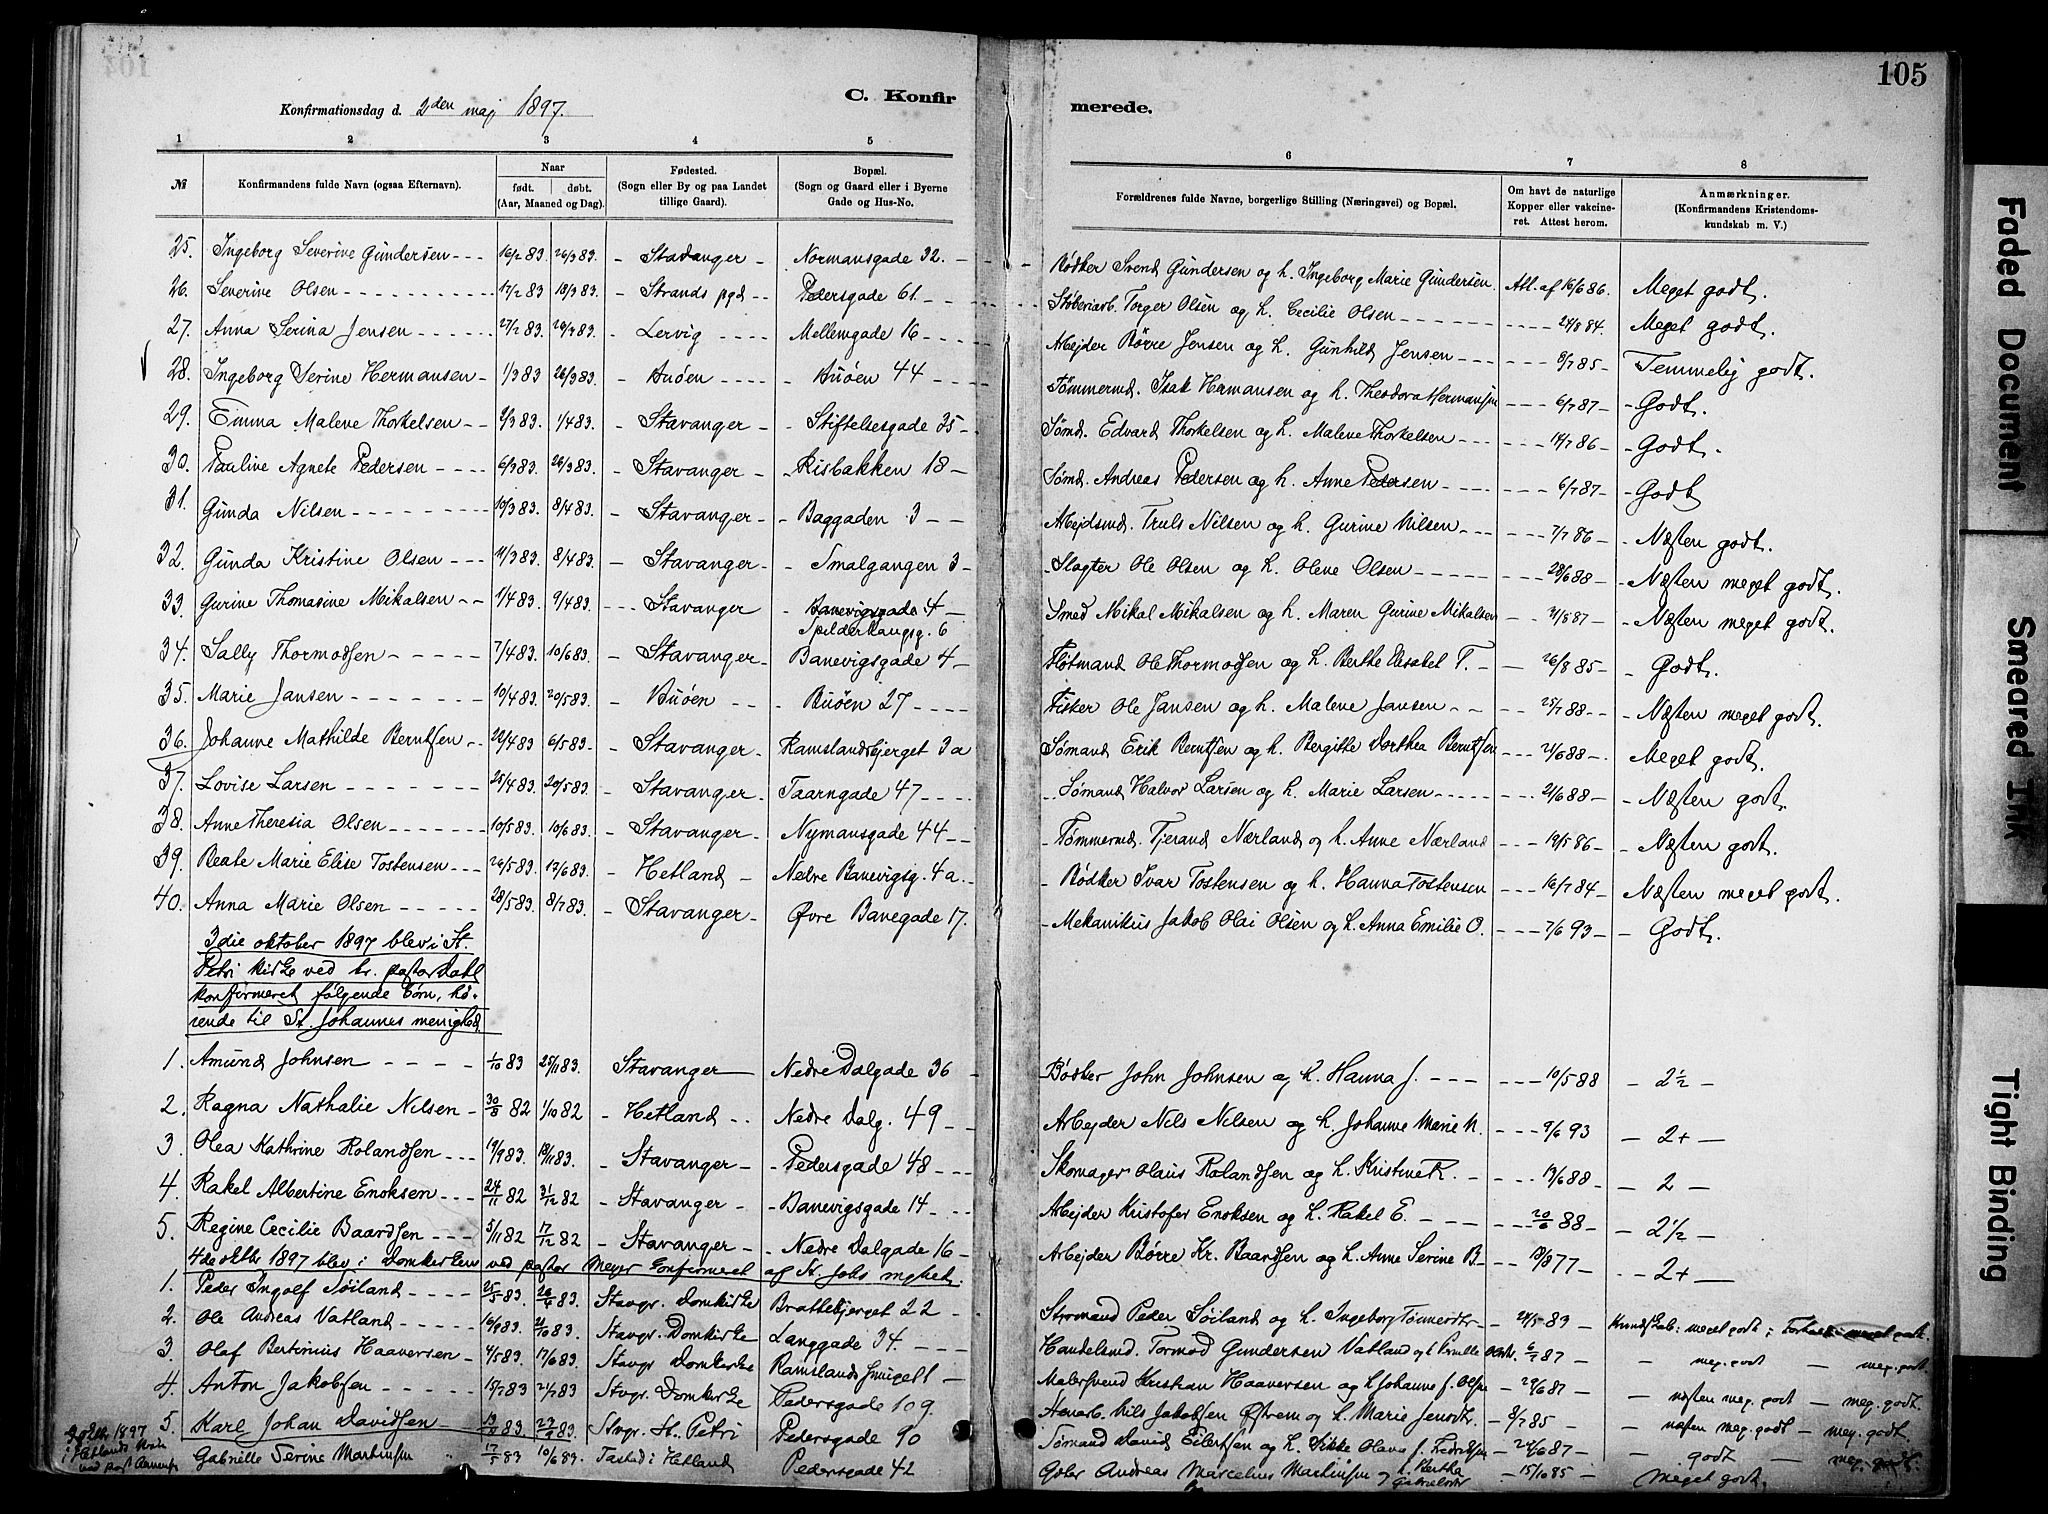 105
Konfirmationsdag d. 2den maj 1897.
C. Konfirmerede.
1 2 3 4 5 6 7 8
№ Konfirmandens fulde Navn (ogsaa Efternavn). Naar født. døbt. (Aar, Maaned og Dag). Fødested. (Sogn eller By og paa Landet tillige Gaard). Bopæl. (Sogn og Gaard eller i Byerne Gade og Hus-No. Forældrenes fulde Navne, borgerlige Stilling (Næringsvei) og Bopæl. Om havt de naturlige Kopper eller vakcineret. Attest herom. Anmærkninger. (Konfirmandens Kristendomskundskab m. V.)
25. Ingeborg Severine Gundersen 16/2 83 26/3 83. Stavanger Normansgade 32. Bødker Svend Gundersen og h. Ingeborg Marie Gundersen. Att. af 16/6 86. Meget godt.
26. Severine Olsen 17/2 83 18/3 83. Strands pgd Pedersgade 61. Støberiarb. Torger Olsen og h. Cecilie Olsen 24/8 84. Meget godt.
27. Anna Serina Jensen 27/2 83. 29/3 83. Lervig Mellemgade 16 Arbejder Børre Jensen og h. Gunhild Jensen 8/7 85 Temmelig godt.
28. Ingeborg Serine Hermansen 1/3 83 26/3 83. Buøen Buøen 44 Tømmermd. Isak Hermansen og h. Theodora Hermansen 6/7 87 Godt.
29. Emma Malene Thorkelsen 2/3 83. 1/4 83. Stavanger Stiftelsesgade 35 Sømd. Edvard Thorkelsen og h. Malene Thorkelsen 14/7 86 Godt.
30. Pauline Agnete Pedersen 6/3 83 26/3 83. Stavanger Risbakken 18 Sømd. Andreas Pedersen og h. Anne Pedersen 6/7 87 Godt
31. Gunda Nilsen 10/3 83. 8/4 83. Stavanger Baggaden 3 Arbejdsmd. Truls Nilsen og h. Gurine Nilsen 7/7 86 Næsten godt.
32. Gunda Kristine Olsen 11/3 83. 8/4 83. Stavanger Smalgangen 3 Slagter Ole Olsen og h. Olene Olsen 28/6 88 Næsten meget godt.
33. Gurine Thomasine Mikalsen 1/4 83. 9/4 83. Stavanger Banevigsgade 4 Spilderhaugsg. 6 Smed Mikal Mikalsen og h. Maren Gurine Mikalsen 31/8 87 Næsten meget godt.
34. Sally Thormodsen 7/4 83. 10/6 83. Stavanger Banevigsgade 4 Flotmand Ole Thormodsen og h. Berthe Elisabet T. 26/8 85 Godt.
35. Marie Jansen 10/4 83. 20/5 83. Buøen Buøen 27 Fisker Ole Jansen og h. Malene Jansen 25/7 88 Næsten meget godt.
36. Johanne Mathilde Berntsen 22/4 83. 6/5 83. Stavanger Ramslandsbjerget 3a Sømand Erik Berntsen og h. Bergitte Dorthea Berntsen 21/6 88 Meget godt.
37. Lovise Larsen 25/4 83. 20/5 83. Stavanger Taarngade 47 Sømand Halvor Larsen og h. Marie Larsen 21/6 88 Næsten godt.
38. Anne Theresia Olsen 10/5 83. 10/6 83. Stavanger Nymansgade 44 Tømmermd. Tjerand Nærland og h. Anne Nærland 19/5 86 Næsten godt.
39. Beate Marie Elise Tostensen 26/5 83. 17/6 83. Hetland Nedre Banevigsg. 4a. Bødker Ivar Tostensen og h. Hanna Tostensen 16/7 84 Næsten meget godt.
40. Anna Marie Olsen 28/5 83. 8/7 83. Stavanger Øvre Banegade 17. Mekanikus Jakob Olai Olsen og h. Anna Emilie O. 7/6 93 Godt.
3die oktober 1897 blev i St.
Petri kirke ved hr. pastor Dahl
konfirmeret følgende børn, hø-
rende til St. Johannes menighed.
1. Amund Johnsen 1/10 83 25/11 83. Stavanger Nedre Dalgade 36 Bødker John Johnsen og h. Hanna J. 10/5 88 2 1/2
2. Ragna Nathalie Nilsen 30/8 82 1/10 82 Hetland Nedre Dalg. 49 Arbejder Nils Nilsen og h. Johanne Marie N. 9/6 93 2+
3. Olea Kathrine Rolandsen 19/9 83. 18/11 83. Stavanger Pedersgade 48 Skomager Olaus Rolandsen og h. Kristine R. 13/6 88 2
4. Rakel Albertine Enoksen 24/11 82 31/12 82 Stavanger Banevigsgade 14 Arbejder Kristofer Enoksen og h. Rakel E. 20/6 88 2 1/2
5. Regine Cecilie Baardsen 5/11 82 17/12 82 Stavanger Nedre Dalgade 16 Arbejder Børre Kr. Baardsen og h. Anne Serine B. 18/8 77 2+
4de oktbr 1897 blev i Domkirken ved pastor Meyer konfirmeret af St. Johs mghet.
1. Peder Ingolf Søiland 25/3 83. 26/4 83. Stavgr. Domkirke Brattebjerget 22 Styrmand Peder Søiland og h. Ingeborg Tønnesdtr 24/5 83 Kundskab: meget godt; Forhold: meget godt.
2. Ole Andreas Vatland 16/9 83. 21/10 83. Stavgr. Domkirke Langgade 34. Handelsmd. Tormod Gundersen Vatland og h. Pernille 6/7 87 meg. godt meg. godt
3. Olaf Bertinius Haaversen 4/5 83. 17/6 83. Stavgr Domkirke Ramslandsmuget 1 Malersvend Kristian Haaversen og h Johanne f. Olsen 29/6 87 næsten meg. godt meg. godt.
4. Anton Jakobsen 15/7 83 24/7 83 Stvgr. Domkirke Pedersgade 109. Nils Jakobsen Østrem og h. Marie Jensdt. 8/7 85 næsten meg. godt meg. godt.
5. Karl Johan Davidsen 83 83. Stvgr. St. Petri Pedersgade 90 Sømand David Eilertsen og h. Sikke Olava f. Fredriksen 24/6 87 godt meg. godt.
1897 i Hetlands kirke ved past.
Gabrielle Serine Martinsen 17/5 83 10/6 83. Tasted i Hetland Pedersgade 42 Andreas Marcelius Martinsen og h. Bertha Gabrielsdtr 15/10 85 Meget godt.
Faded Document
Smeared Ink
Tight Binding